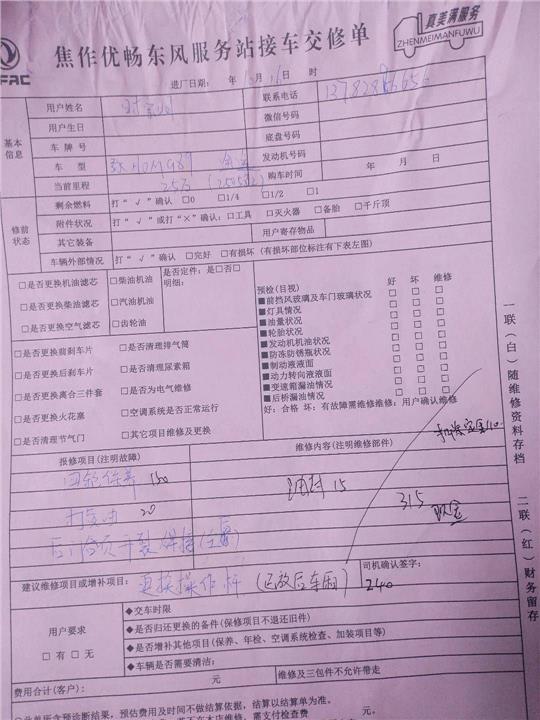 FAC
焦作优畅东风服务站接车交修单
真美满服务
ZHENMEIMANFUWU
进厂日期： 年 月 日 时
基本信息
用户姓名
联系电话
用户生日
微信号码
车 牌 号
底盘号码
车 型
发动机号码
当前里程
25万
购车时间
年 月 日
修前状态
剩余燃料
打“√”确认 □0 □1/4 □1/2 □1
附件状况
打“√”或打“×”确认：□工具 □灭火器 □备胎 □千斤顶
其它装备
用户寄存物品
车辆外部情况
打“√”确认 □完好 □有损坏 (有损坏部位标注有下表左图)
□是否更换机油滤芯
□柴油机油
是否定件：是□否□
明细：
□是否更换柴油滤芯
□汽油机油
□是否更换空气滤芯
□齿轮油
预检(目视)
好 坏 维修
■前挡风玻璃及车门玻璃状况 □ □ □
■灯具情况 □ □ □
■油量状况 □ □ □
■轮胎状况 □ □ □
■发动机机油状况 □ □ □
■防冻防锈瓶状况 □ □ □
■制动液液面 □ □ □
■动力转向液液面 □ □ □
■变速箱漏油情况 □ □ □
■后桥漏油情况 □ □ □
好：合格 坏：有故障需维修维修：用户确认维修
□是否更换前刹车片
□是否清理排气筒
□是否更换后刹车片
□是否清理尿素箱
□是否更换离合三件套
□是否为电气维修
□是否更换火花塞
□空调系统是否正常运行
□是否清理节气门
□其它项目维修及更换
报修项目(注明故障)
维修内容(注明维修部件)
四轮保养 150
油封 15
打黄油 20
315
现金
建议维修项目或增补项目：
更换操作杆
司机确认签字：
240
用户要求
□ 有 □ 无
◆交车时限
◆是否归还更换的备件(保修项目不退还旧件)
◆是否增补其他项目(保养、年检、空调系统检查、加装项目等)
◆车辆是否需要清洁：
费用合计(客户)：
元
维修及三包件不允许带走
元。
一联（白）随维修资料存档
二联（红）财务留存